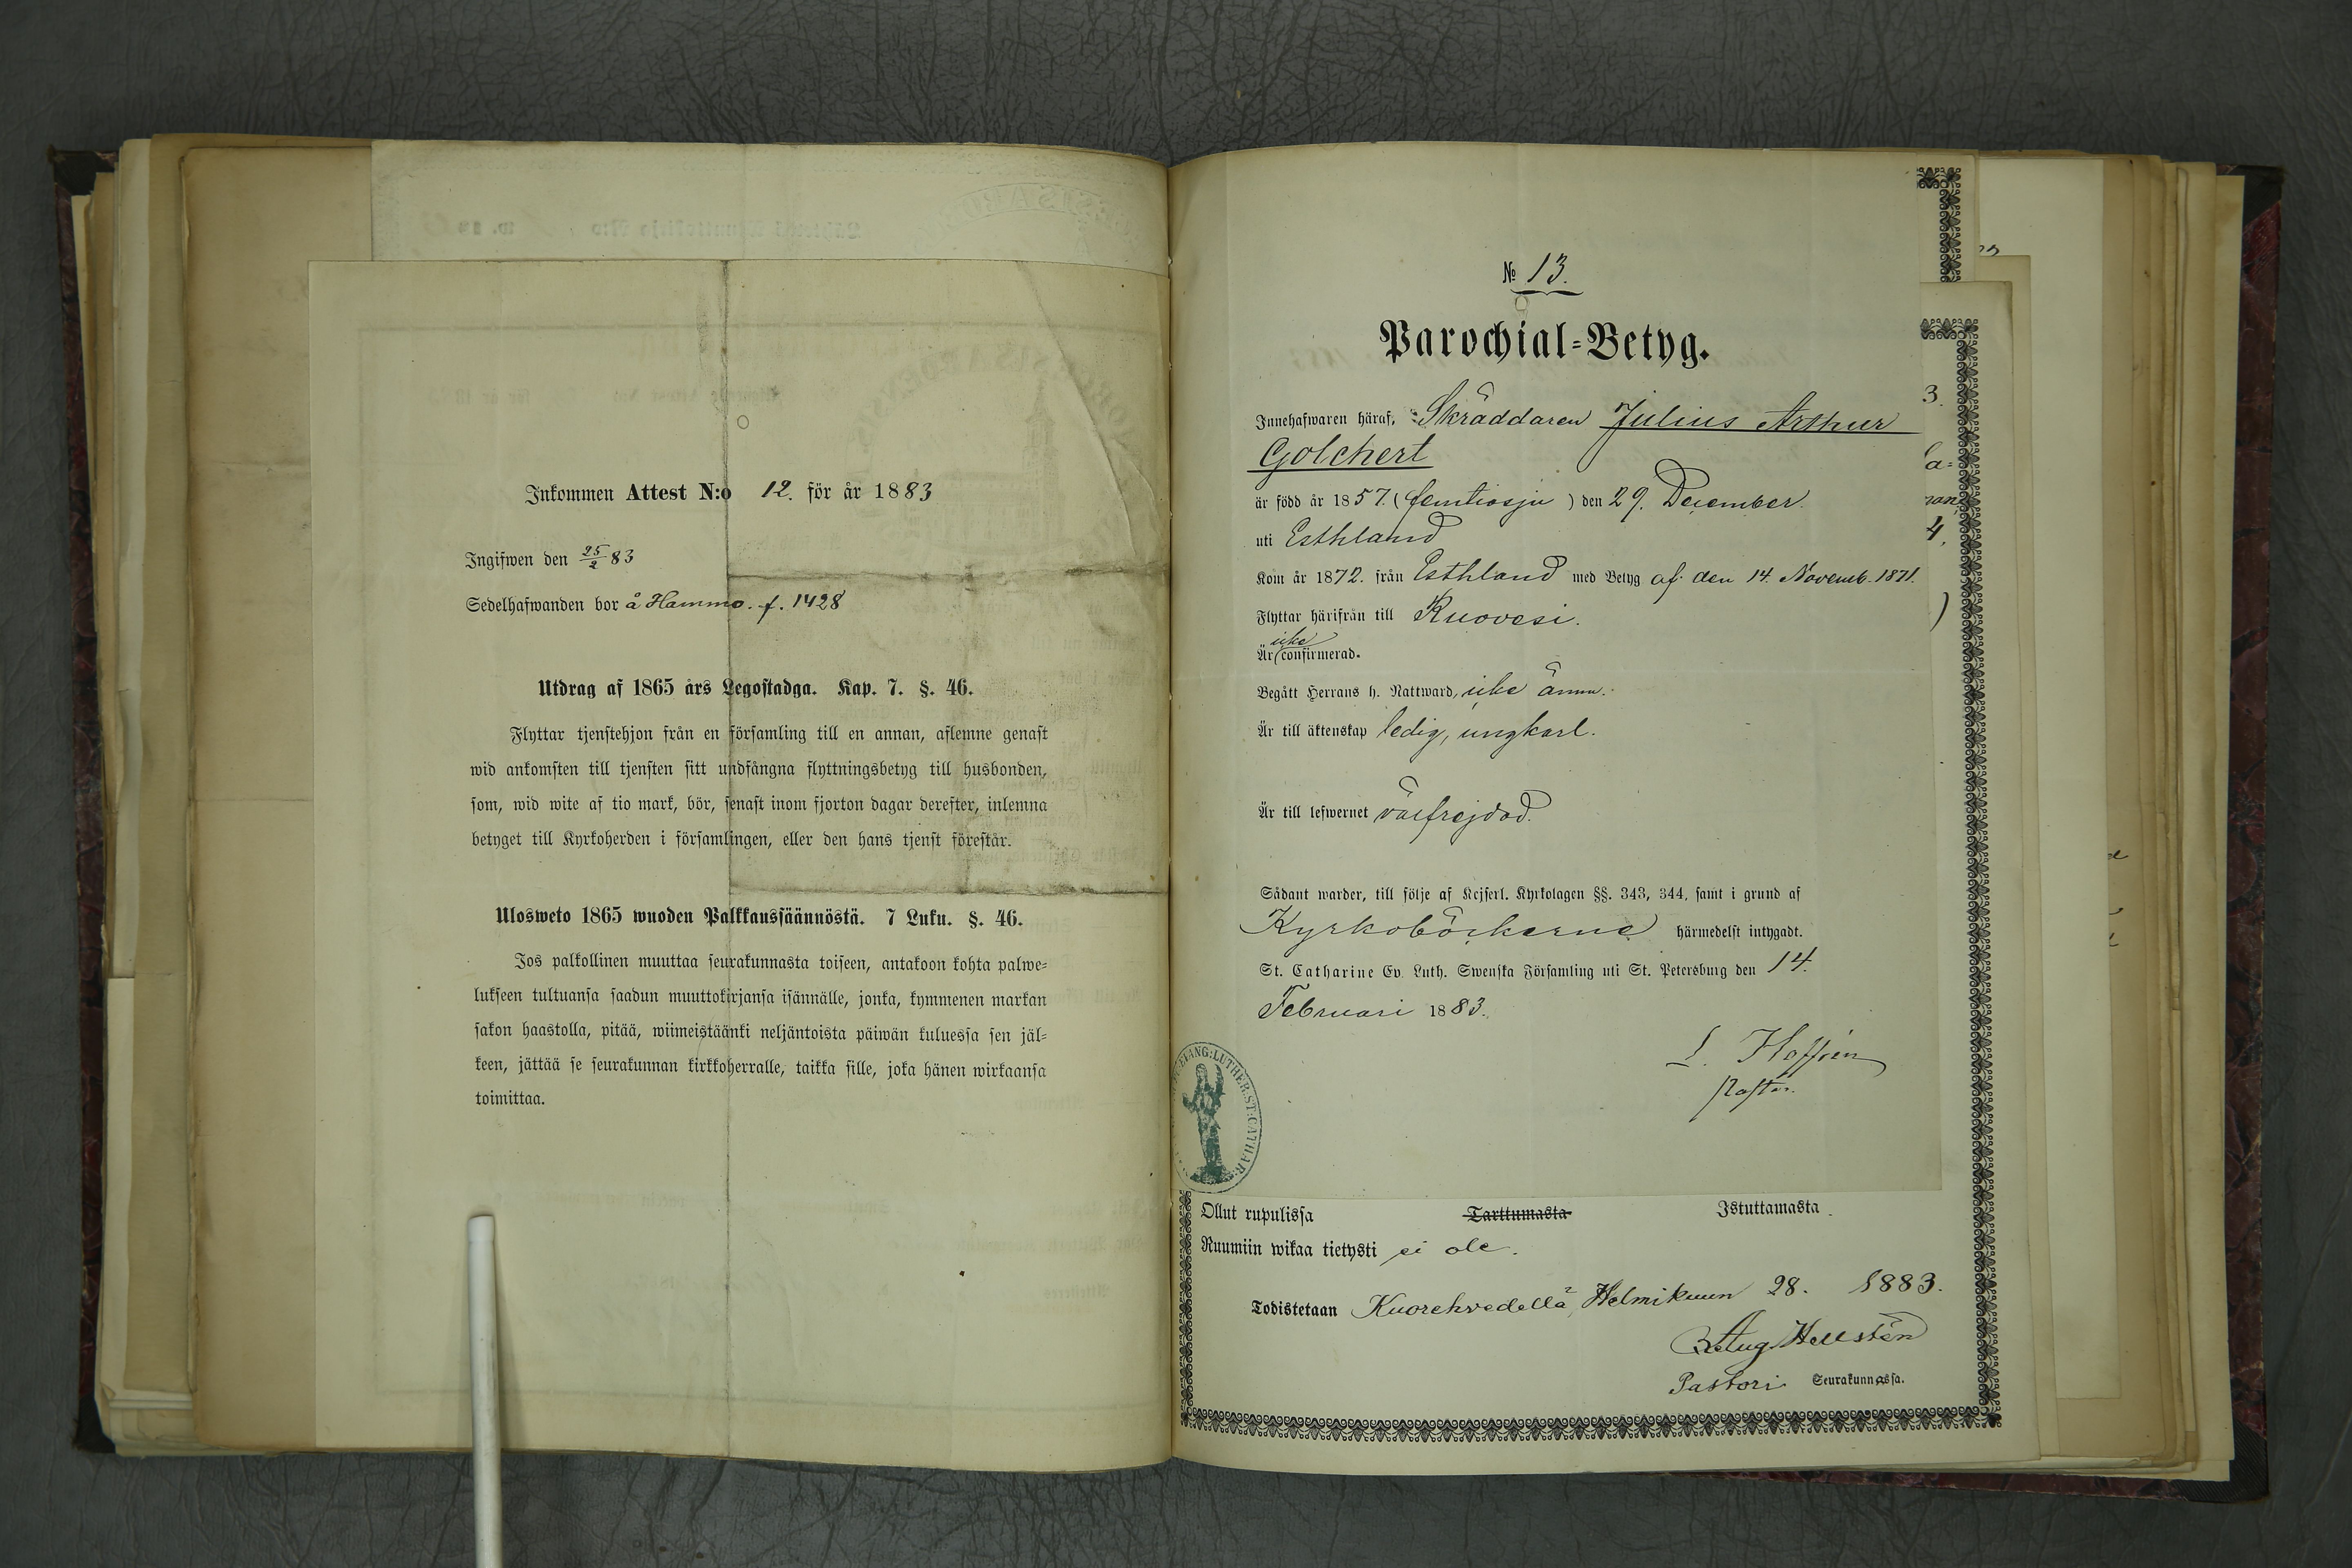 Inkommen Attest N:o 12. för år 1883
Ingifwen den 25/2 83
Sedelhafwanden bor å Hammo. f. 1428
Utdrag af 1865 års Legostadga. Kap. 7. §. 46.
Flyttar tjenstehjon från en församling till en annan, aflemne genast
wid ankomsten till tjensten sitt undfångna flyttningsbetyg till husbonden,
som, wid wite af tio mark, bör, senast inom fjorton dagar derefter, inlemna
betyget till Kyrkoherden i församlingen, eller den hans tjenst förestår.
Ulosweto 1865 wuoden Palkkaussäännöstä. 7 Luku. §. 46.
Jos palkollinen muuttaa seurakunnasta toiseen, antakoon kohta palwe=
lukseen tultuansa saadun muuttokirjansa isännälle, jonka, kymmenen markan
sakon haastolla, pitää, wiimeistäänki neljäntoista päiwän kuluessa sen jäl=
keen, jättää se seurakunnan kirkkoherralle, taikka sille, joka hänen wirkaansa
toimittaa.
№ 13.
Parochial=Betyg.
Innehafwaren häraf, Skräddaren Julius Arthur
Golchert
är född år 1857. (femtiosju) den 29. December
uti Esthland
Kom år 1872. från Esthland med Betyg af den 14. Novemb. 1871.
Flyttar härifrån till Ruovesi.
icke
Är confirmerad.
Begått Herrans h. Nattward, icke ännu.
Är till äktenskap ledig, ungkarl.
Är till lefwernet välfrejdad.
Sådant warder, till följe af Kejserl. Kyrkolagen §§. 343, 344, samt i grund af
Kyrkoböckerne härmedelst intygadt.
St. Catharine Ev. Luth. Swenska Församling uti St. Petersburg den 14.
Februari 1883.
Pastor.
EVANG:LUTHER:ST:CATHAR:
Ollut rupulissa Tarttumasta Istuttamasta
Ruumiin wikaa tietysti ei ole.
Todistetaan Kuorehvedellä, Helmikuun 28. 1883.
Aug Hellstén
Pastori Seurakunnassa.
3.
la=
nan
4,
)